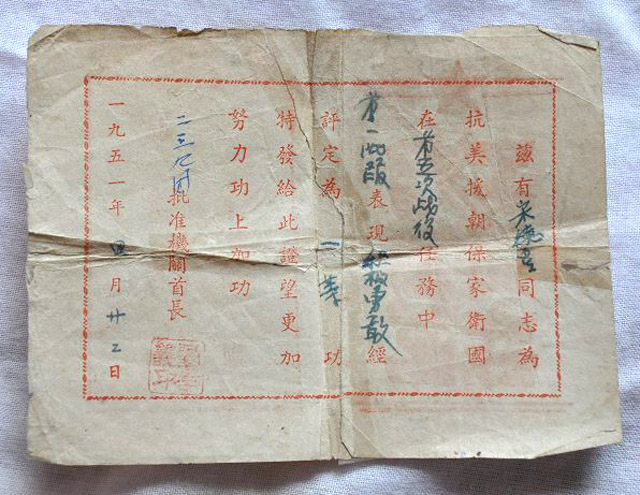 茲有同志為
抗美援朝保家衛國
在第五次战役任務中
第一阶段表現积极勇敢經
評定為一等功
特發給此證望更加
努力功上加功
二三九团批准機關首長
一九五一年四月廿二日